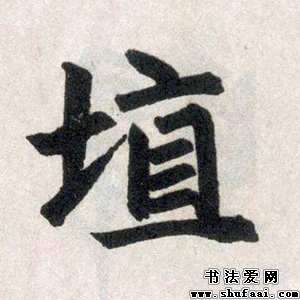 埴
书法爱网
www.shufaai.com